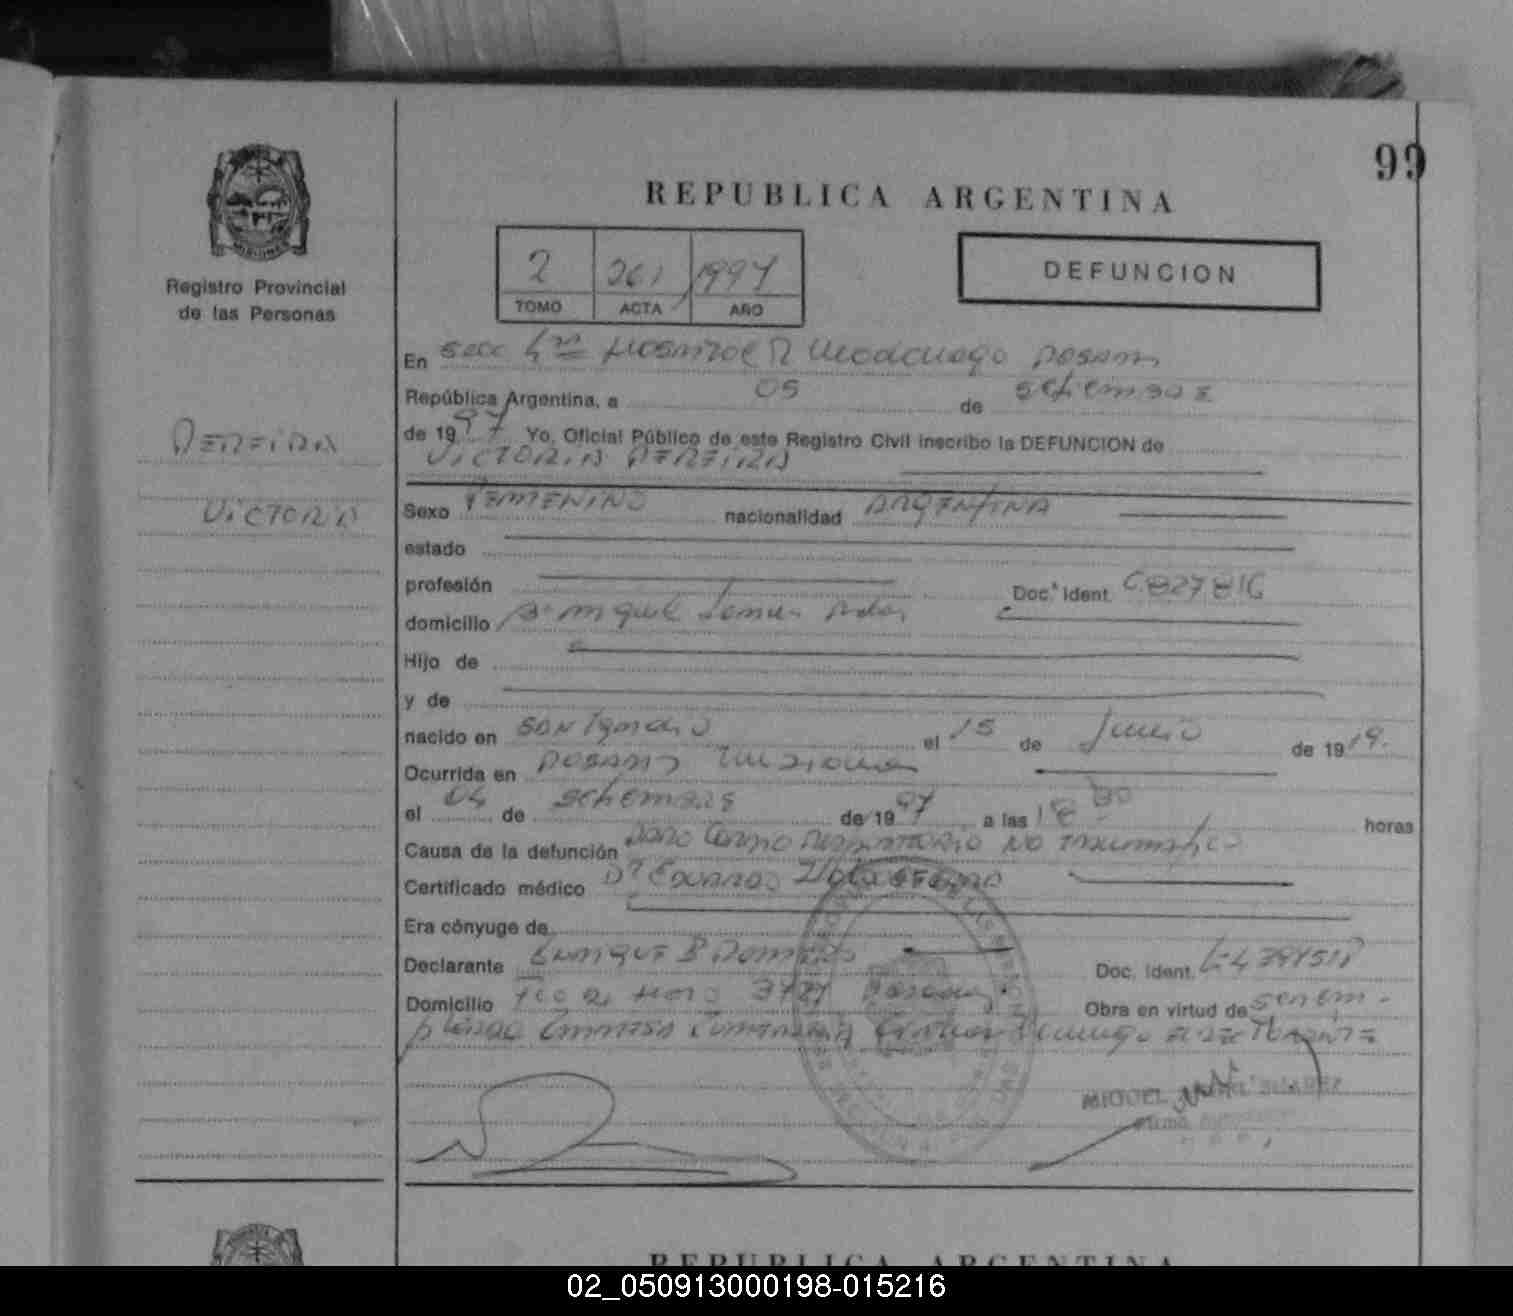 99
REPUBLICA ARGENTINA
Registro Provincial
de las Personas
2 261 1997
TOMO ACTA AÑO
DEFUNCION
En secc 4ta Hospital R Madariaga Posadas
República Argentina, a 05 de setiembre
de 1997 Yo, Oficial Público de este Registro Civil inscribo la DEFUNCION de
VICTORIA PEREIRA
PEREIRA
VICTORIA
Sexo FEMENINO nacionalidad ARGENTINA
estado
profesión Doc. Ident.
domicilio Bo Miguel Lanus Pdas
Hijo de
y de
nacido en San Ignacio el 15 de Junio de 1919.
Ocurrida en Posadas Misiones
el 04 de setiembre de 1997 a las 18 horas
Causa de la defunción Paro Cardio Respiratorio No Traumatico
Certificado médico Dr Eduardo
Era cónyuge de
Declarante Enrique B Doc. Ident.
Domicilio Fco de Haro 3727 Posadas Obra en virtud de ser em-
pleado Empresa
MIGUEL SUAREZ
REPUBLICA ARGENTINA
02_050913000198-015216